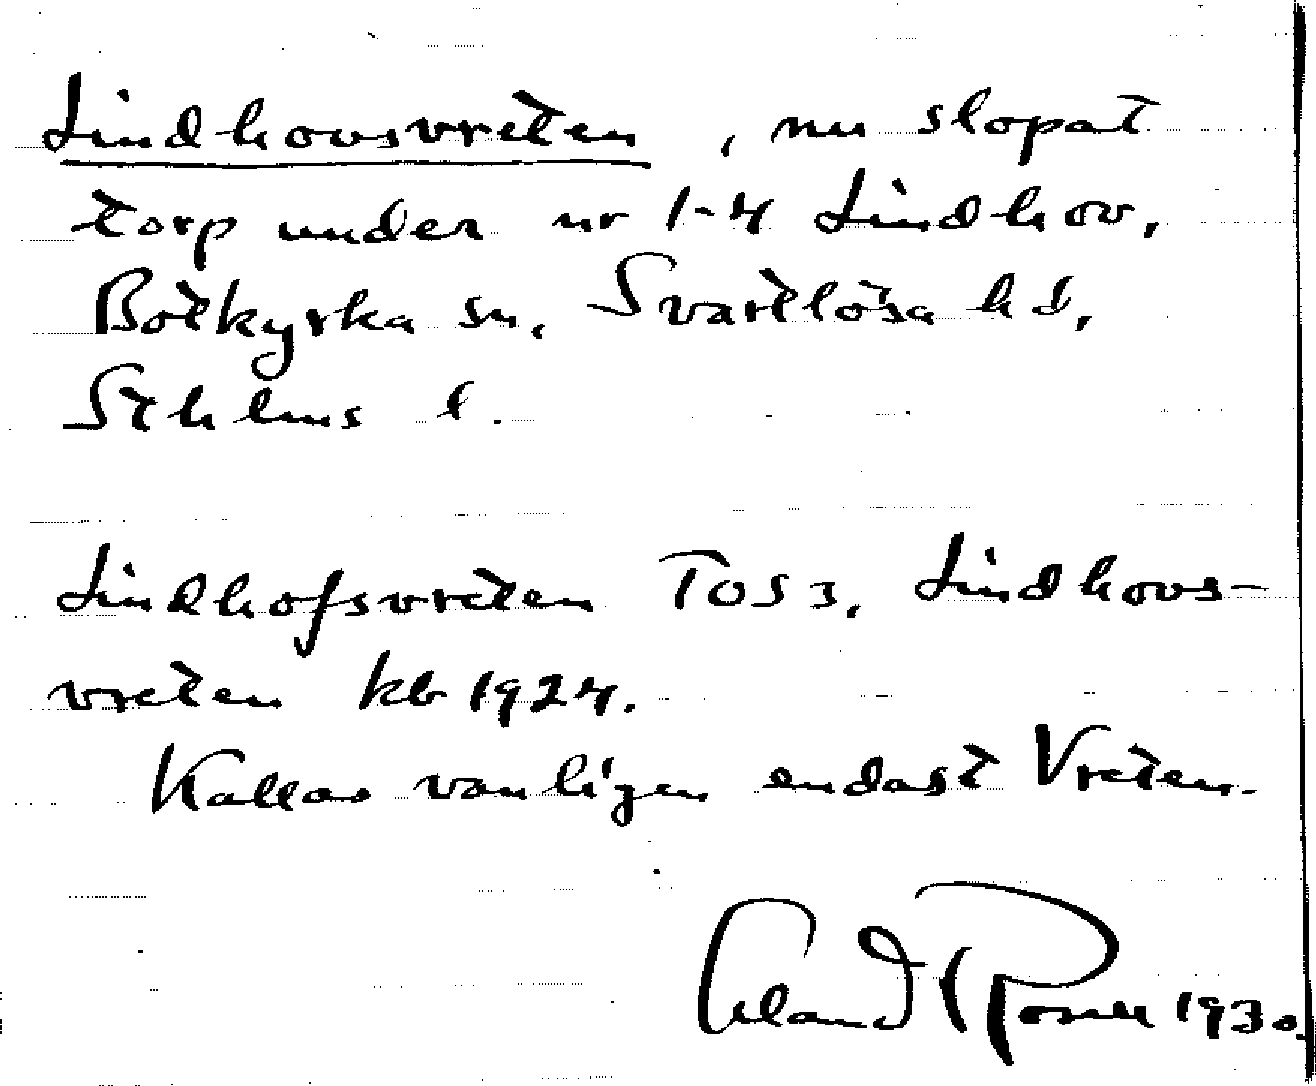 Lindhovsvreten, nu slopat
torp under nr 1-4 Lindhov,
Botkyrka sn, Svartlösa hd,
Sthlms l.
Lindhofsvreten TOS 3, Lindhovs-
vreten kb 1924.
Kallas vanligen endast Vreten.
Erland Rosell 1930.